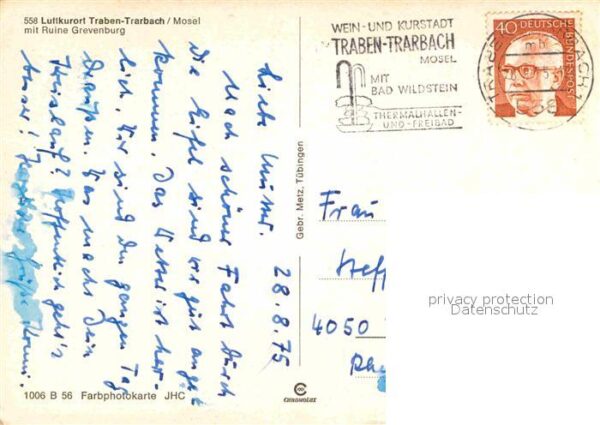 558 Luftkurort Traben-Trarbach / Mosel
mit Ruine Grevenburg
WEIN-UND KURSTADT
TRABEN-TRARBACH
MOSEL
MIT
BAD WILDSTEIN
THERMALHALLEN-
UND-FREIBAD
40 DEUTSCHE BUNDESPOST
28.8.75
Liebe Mutter.
Nach schöner Fahrt durch
die Eifel sind wir gut ange
kommen. Das Wetter ist herr
lich. Wir sind den ganzen Tag
Draußen. Was macht Dein
Hoffentlich geht's
besser! Herzliche Grüße
Gebr. Metz, Tübingen
Frau
Steff
4050
Rhe
privacy protection
Datenschutz
1006 B 56 Farbphotokarte JHC